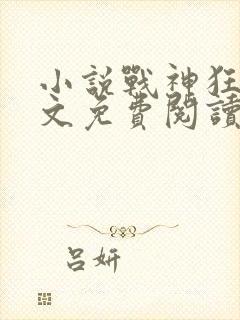 小說戰神狂
文免費閱讀
呂妍